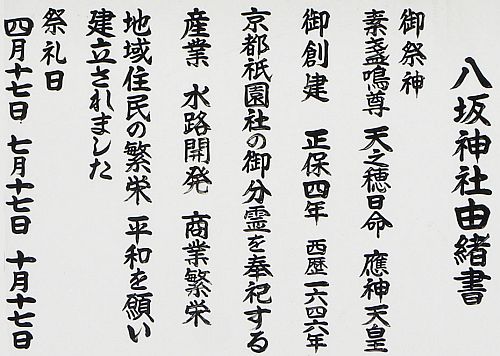 八坂神社由緒書
御祭神
素盞鳴尊 天之穂日命 應神天皇
御創建 正保四年 西歴一六四六年
京都祇園社の御分霊を奉祀する
産業 水路開発 商業繁栄
地域住民の繁栄 平和を願い
建立されました
祭礼日
四月十七日 七月十七日 十月十七日